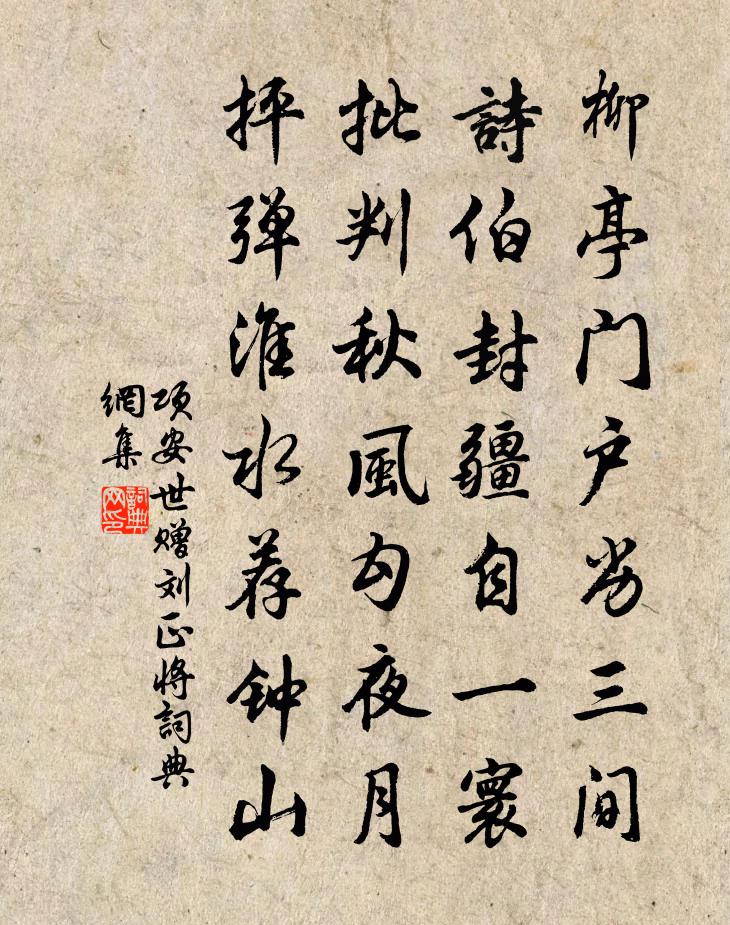 柳亭门户劣三间
詩伯封疆自一寰
批判秋風勾夜月
抨弹淮水荐钟山
项安世赠刘正將詞典
網集
詞典网印